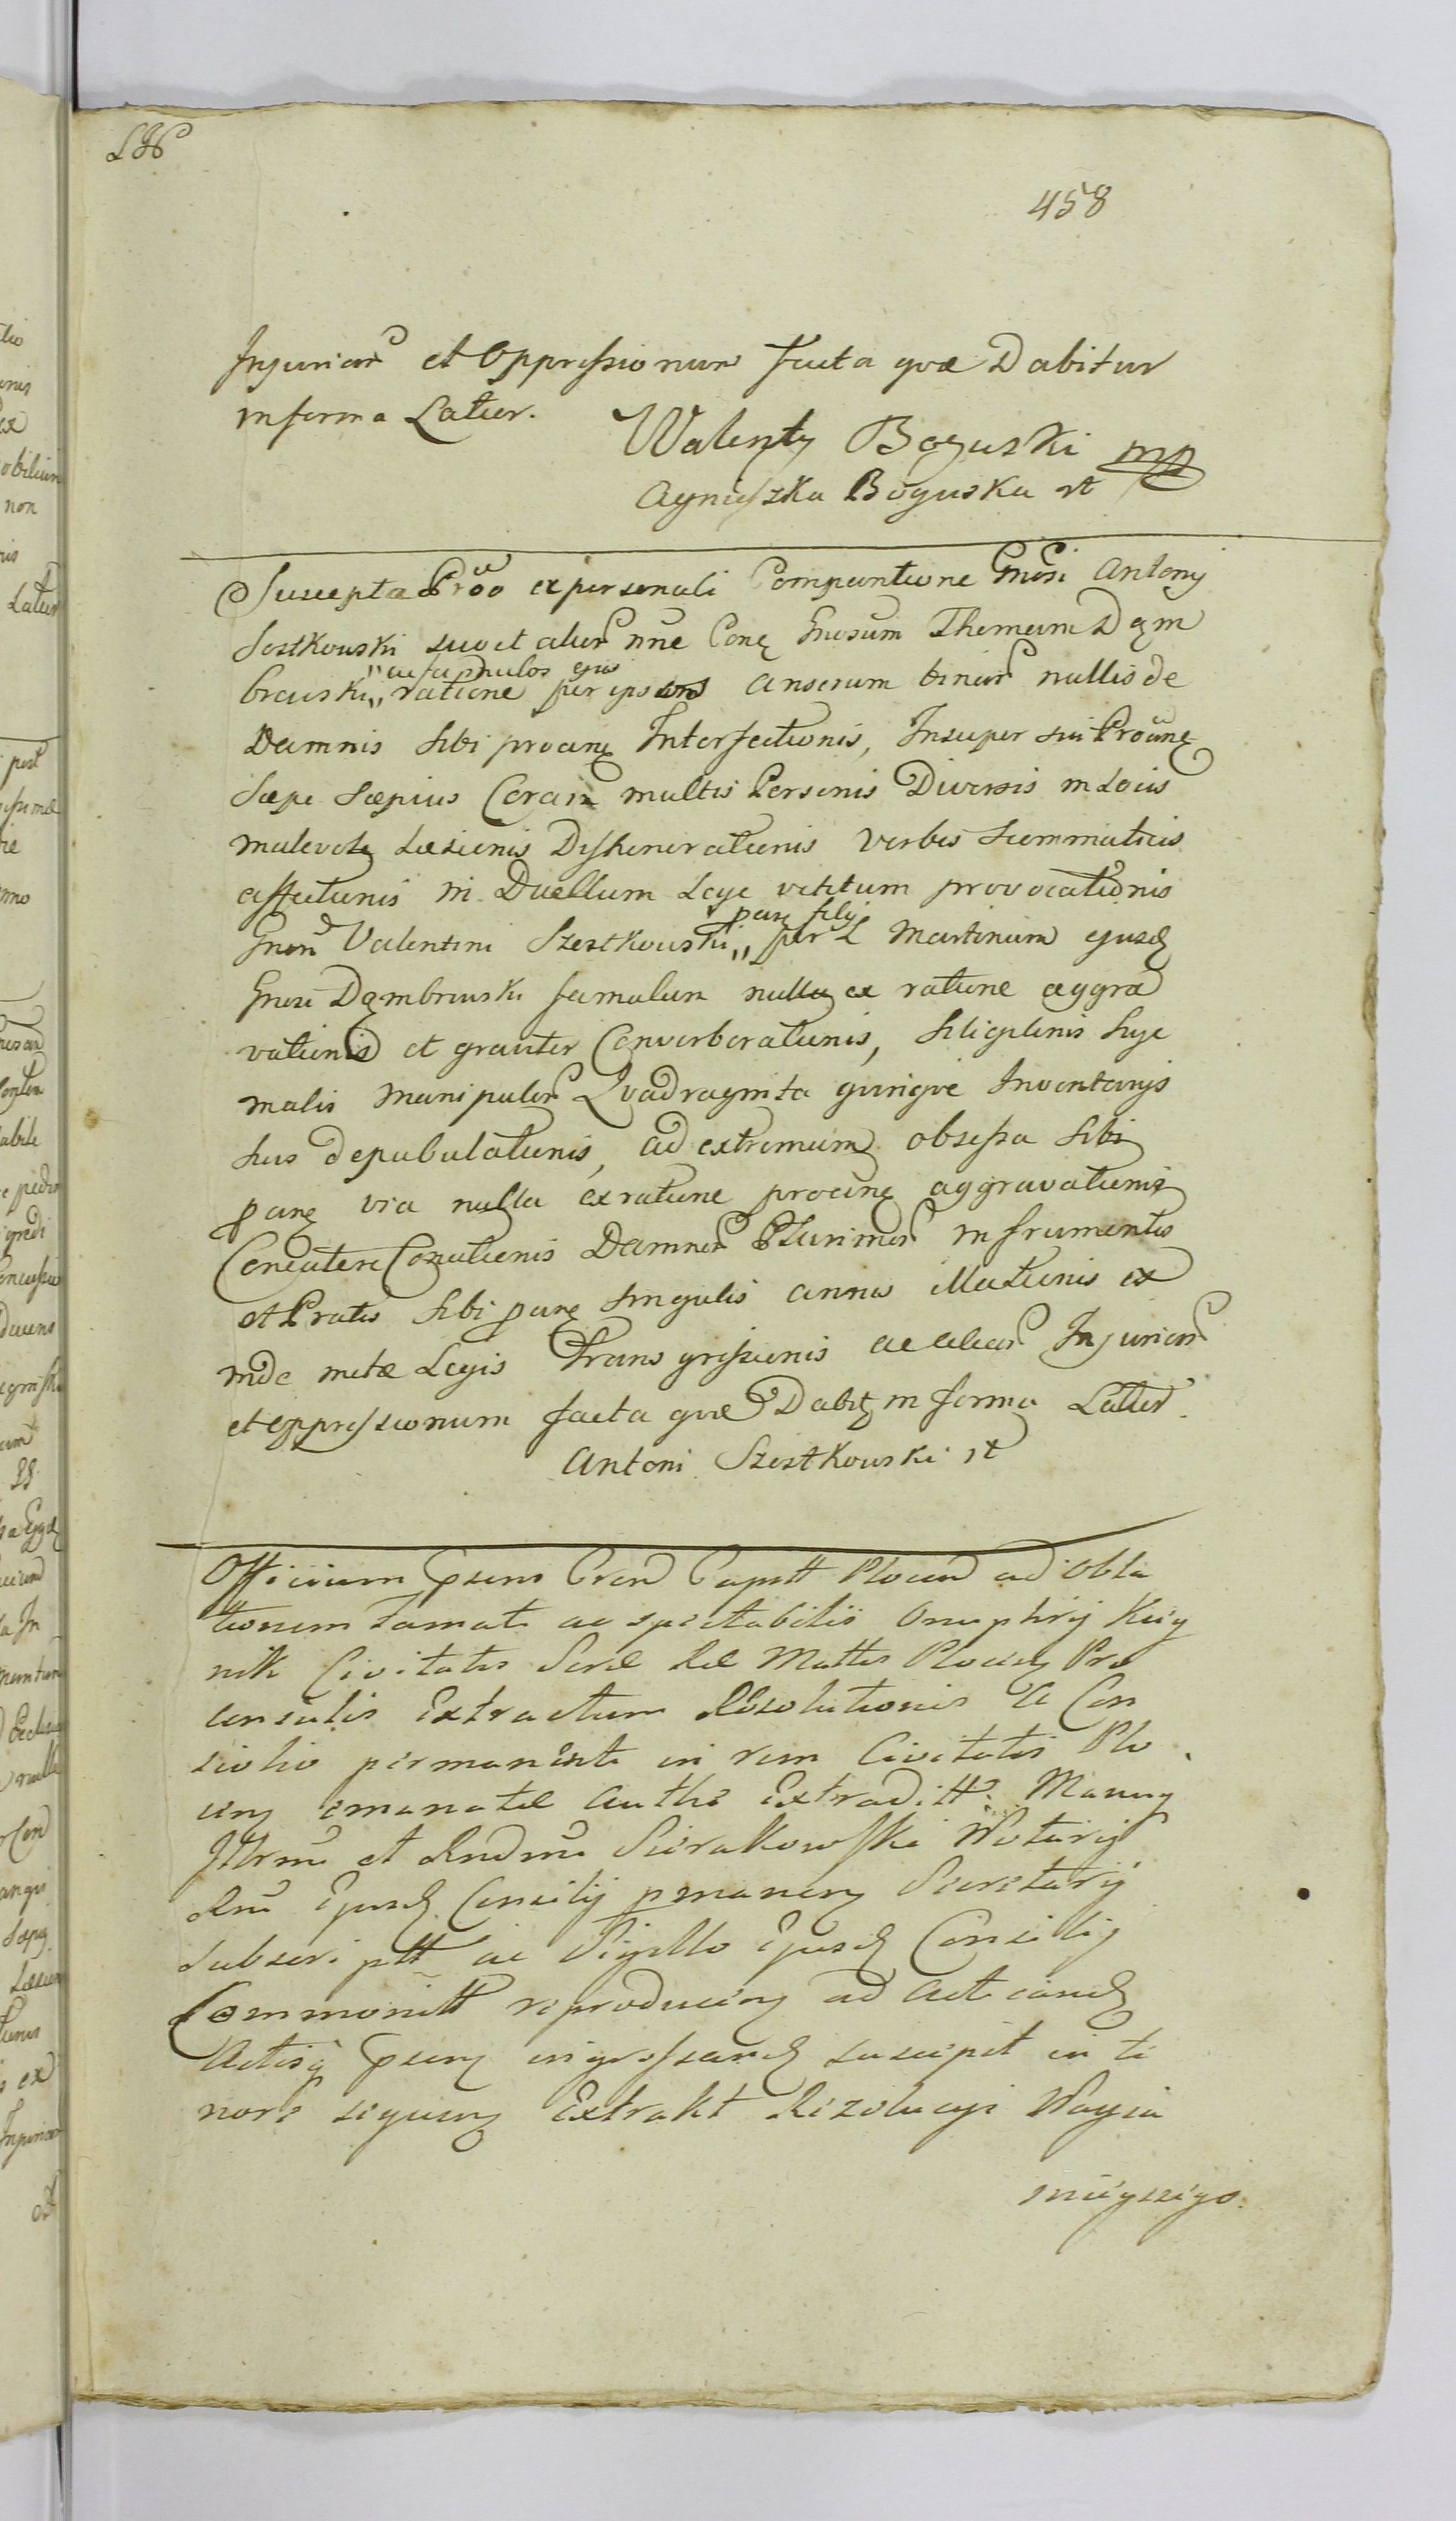 458
Injuriar et Oppressionum facta quæ Dabitur
in forma Latior.
Walenty Boguski mp
Agnieszka Boguska st
Suscepta Proo ex personali Comparitione Gnosi Antony
Sostkowski suo et alior nne Conq Gnosum Thomam Dąm
browski " ratione per ipsum Anserum binar nullis de
ac famulos ejus
Damnis Sibi procinq Interfectionis, Insuper sui Procinq
Sæpe Sæpius Coram multis Personis Diversis in Locis
malevole Læsionis Dishonorationis verbis Summaticis
affectionis in Duellum Lege vetitum provocationis
Gnon Valentini Szostkowski " per L Martinum ejusd
panq filij
Gnosi Dąmbrowski famulum nulla ex ratione aggra
vationis et graviter Converberationis, Siliginis hye
malis Manipulor Quadraginta quinque Inventarijs
suis depabulationis, ad extremum obsessa Sibi
panq via nulla ex ratione procinq aggravationis
Concutere Conationis Damnor Plurimor in frumentis
et Pratis Sibi panq Singulis annis illationis ex
inde metæ Legis Transgressionis ac aliar Injuriar
et oppressionum facta quæ Dabitz in forma Latior.
Antoni Szostkowski st
Officium Psens Cren Capstt Plocen ad Obla
tionem Famati ac spectabilis Onuphrij
nik Civitatis Sacræ Ræ Mattis Plocen Pro
consulis Extractum Resolutionis a Con
silio permanente in rem Civitatis Plo
cen emanatæ Authe Extraditt. Manuq
Illrmi et Rndmi Sierakowski Notarij
Rni Ejusd Consilij pmanen Secretarij
Subscriptt ac Sigillo Ejusd Consilij
Commonitt reproducen ad Acticand
Actisq Psenq ingrossand suscepit in te
nore sequenq Extrakt Rezolucyi Nayia
snieyszego.